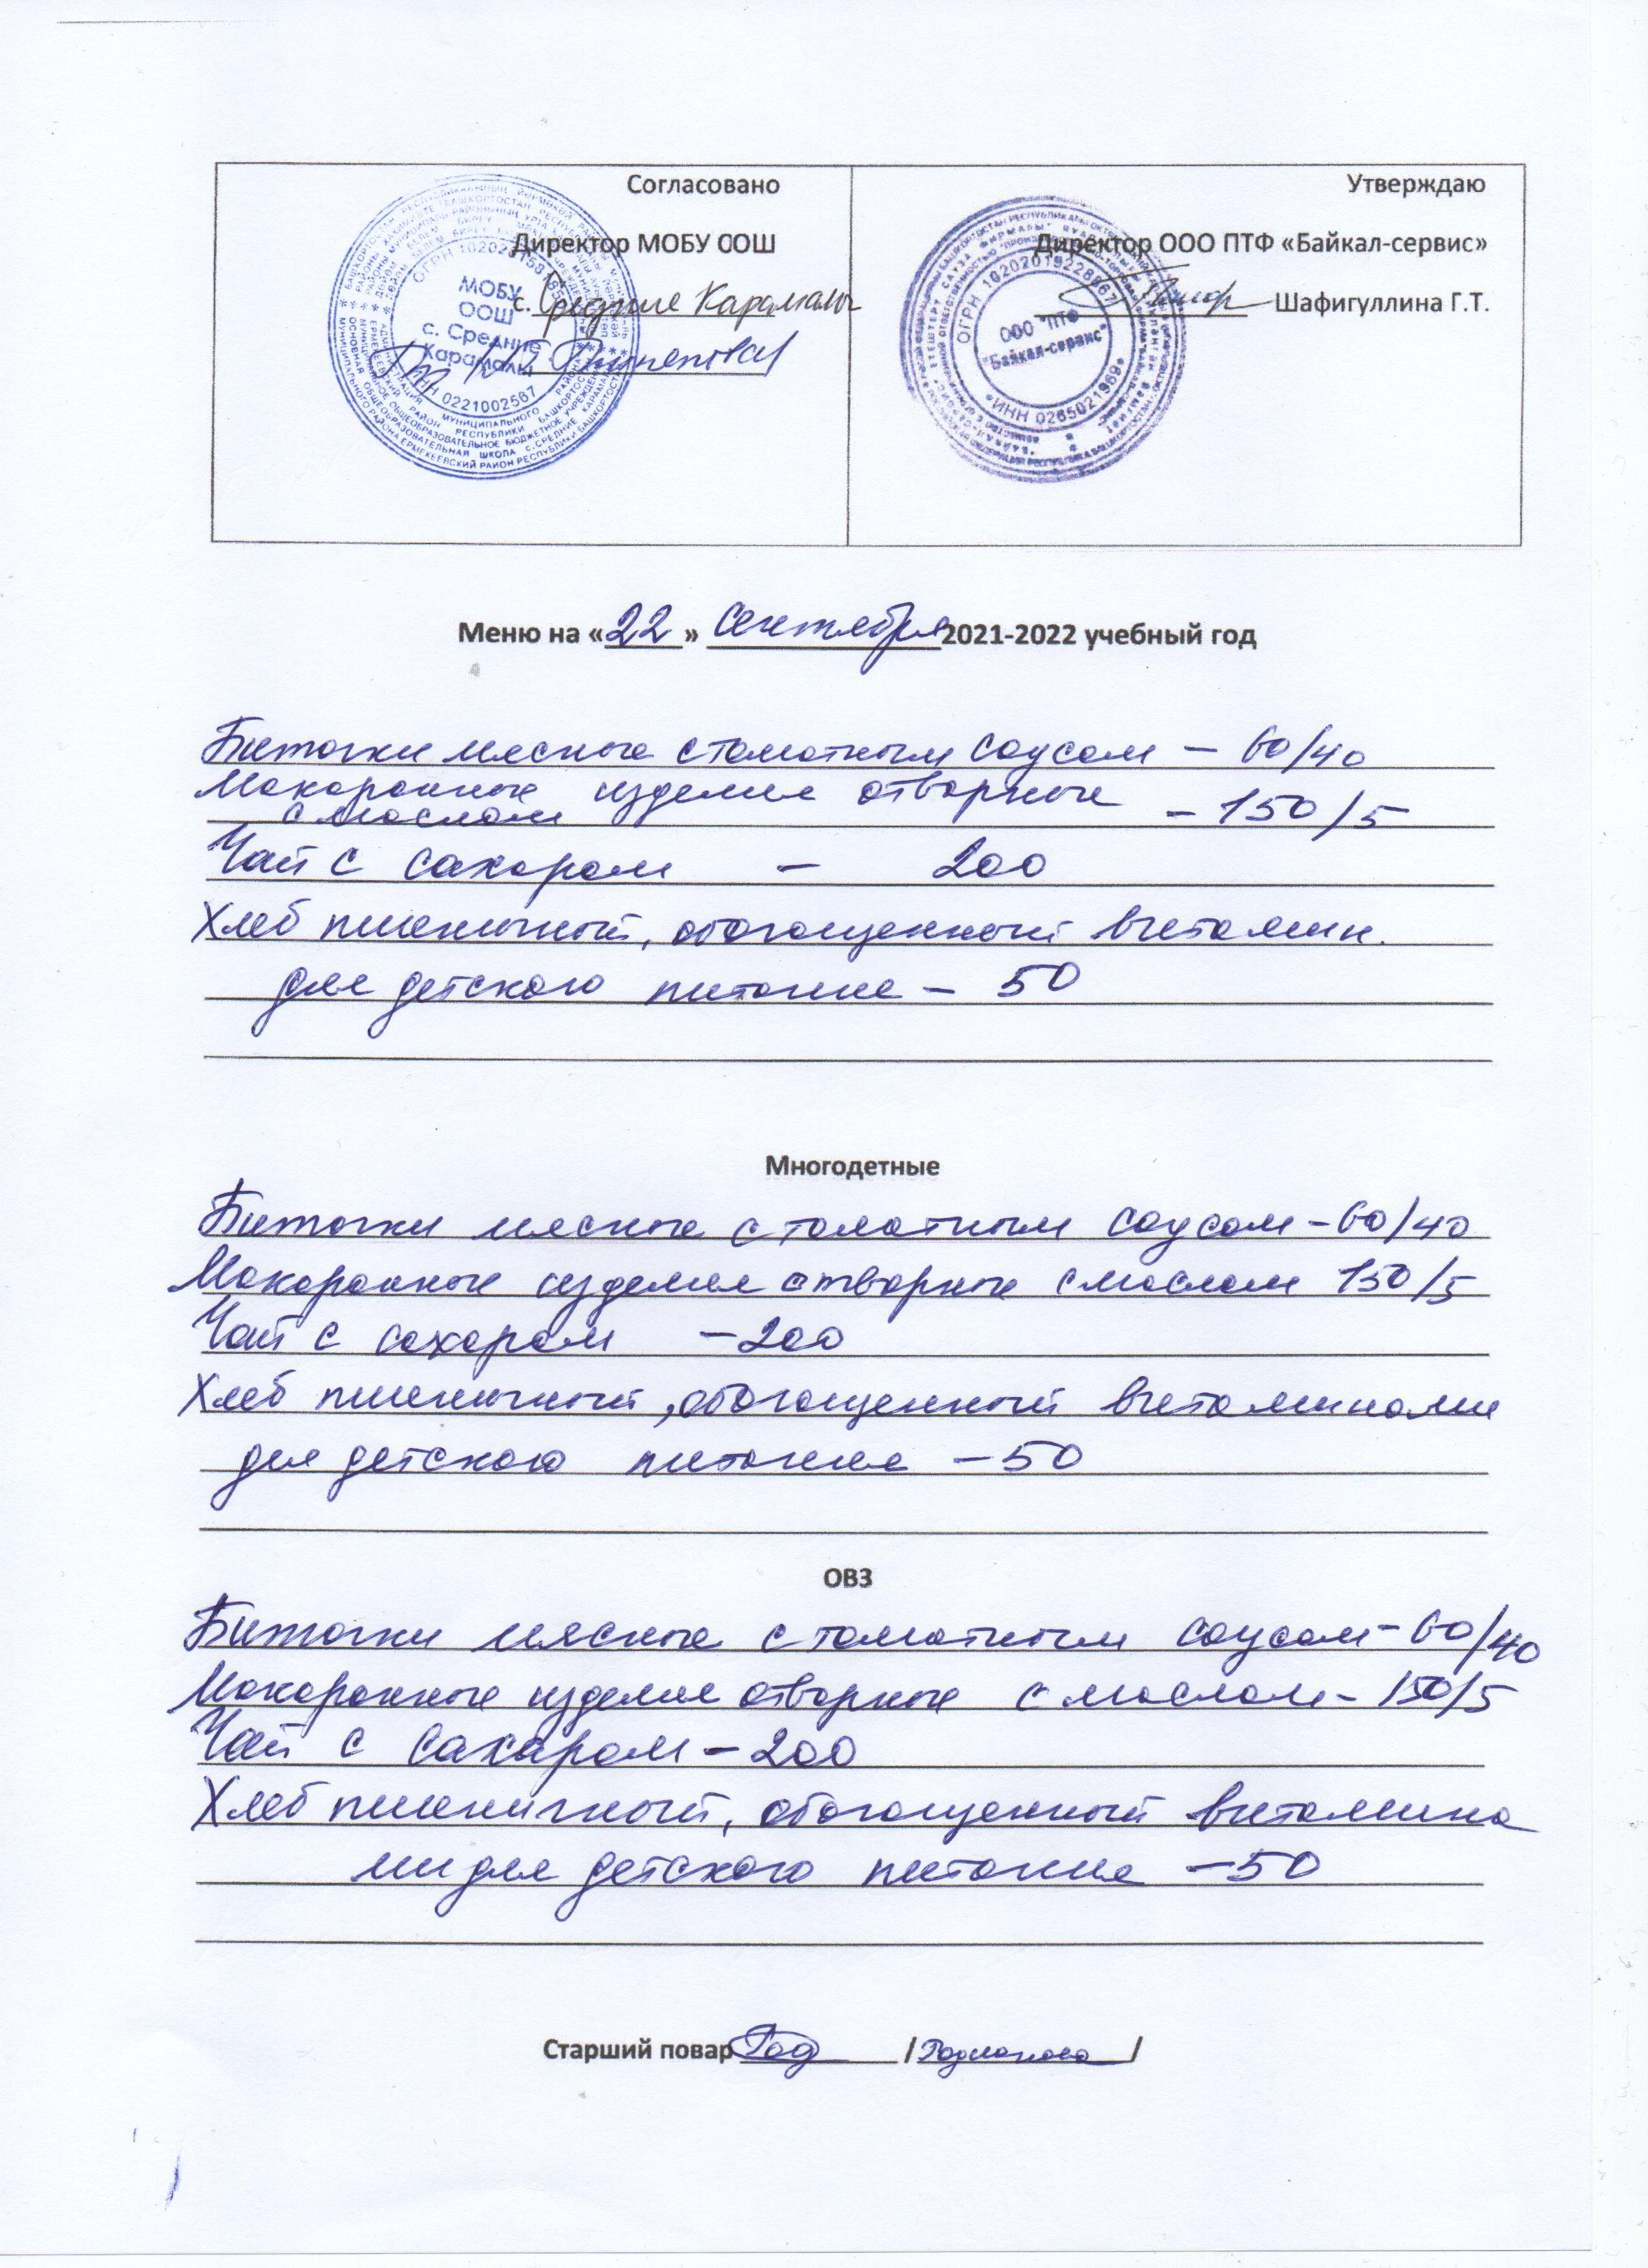 Согласовано
Директор МОБУ ООШ
с. Средние Карамалы
МОБУ
ООШ
с. Средние
Карамалы
ИНН 0221002567
Утверждаю
Директор ООО ПТФ «Байкал-сервис»
Шафигуллина Г.Т.
ОГРН 1020201922
ООО "ПТФ
"Байкал-сервис"
ИНН 0265021969
Меню на «22» сентября 2021-2022 учебный год
Биточки мясные с томатным соусом – 60/40
Макаронные изделия отварные
с маслом – 150/5
Чай с сахаром – 200
Хлеб пшеничный, обогащенный витамин.
для детского питания – 50
Многодетные
Биточки мясные с томатным соусом – 60/40
Макаронные изделия отварные с маслом 150/5
Чай с сахаром – 200
Хлеб пшеничный, обогащенный витаминами
для детского питания – 50
ОВЗ
Биточки мясные с томатным соусом – 60/40
Макаронные изделия отварные с маслом – 150/5
Чай с сахаром – 200
Хлеб пшеничный, обогащенный витамина
ми для детского питания – 50
Старший повар / /